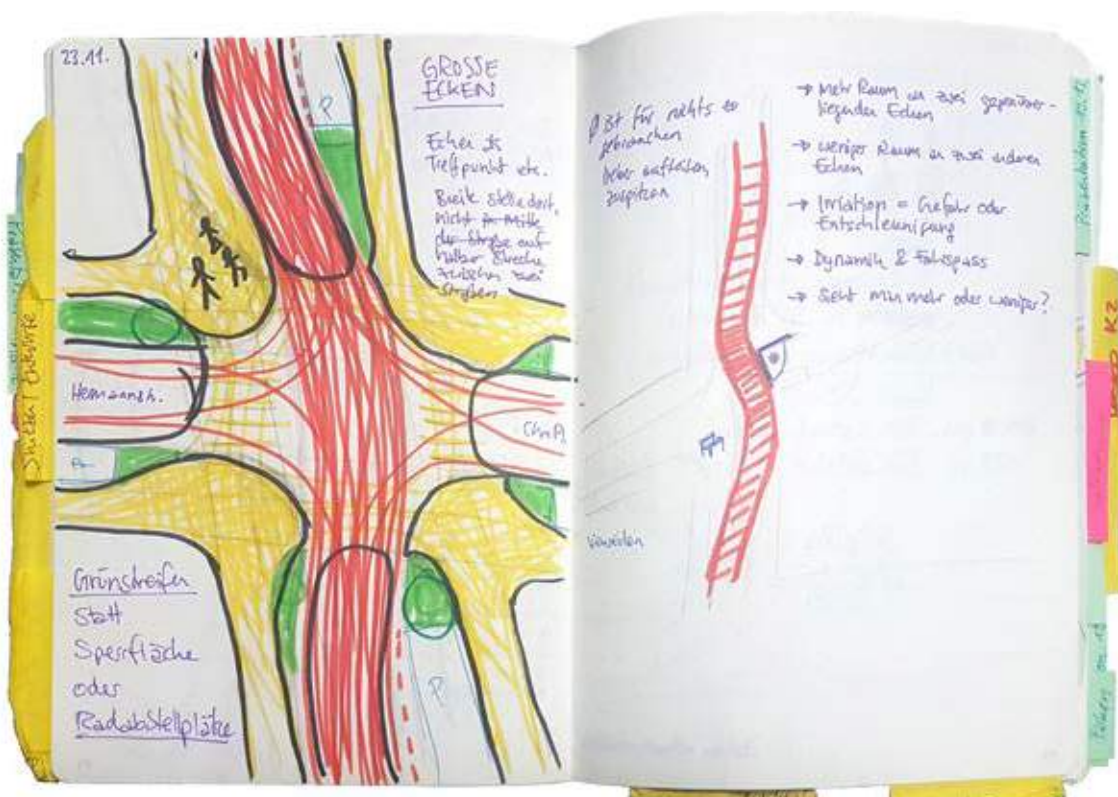 23.11.
GROSSE
ECKEN
Ecken als
Treffpunkt etc.
Breite Stelle dort,
nicht in Mitte
der Straße auf
halber Strecke
zwischen zwei
Straßen
P
Hermannstr.
P
Grünstreifen
statt
Sperrfläche
oder
Radabstellplätze
ist für nichts zu
gebrauchen
lieber
zuspitzen
→ Mehr Raum an zwei gegenüber-
liegenden Ecken
→ weniger Raum an zwei anderen
Ecken
→ Irritation = Gefahr oder
Entschleunigung
→ Dynamik & Fahrspass
→ Sieht man mehr oder weniger?